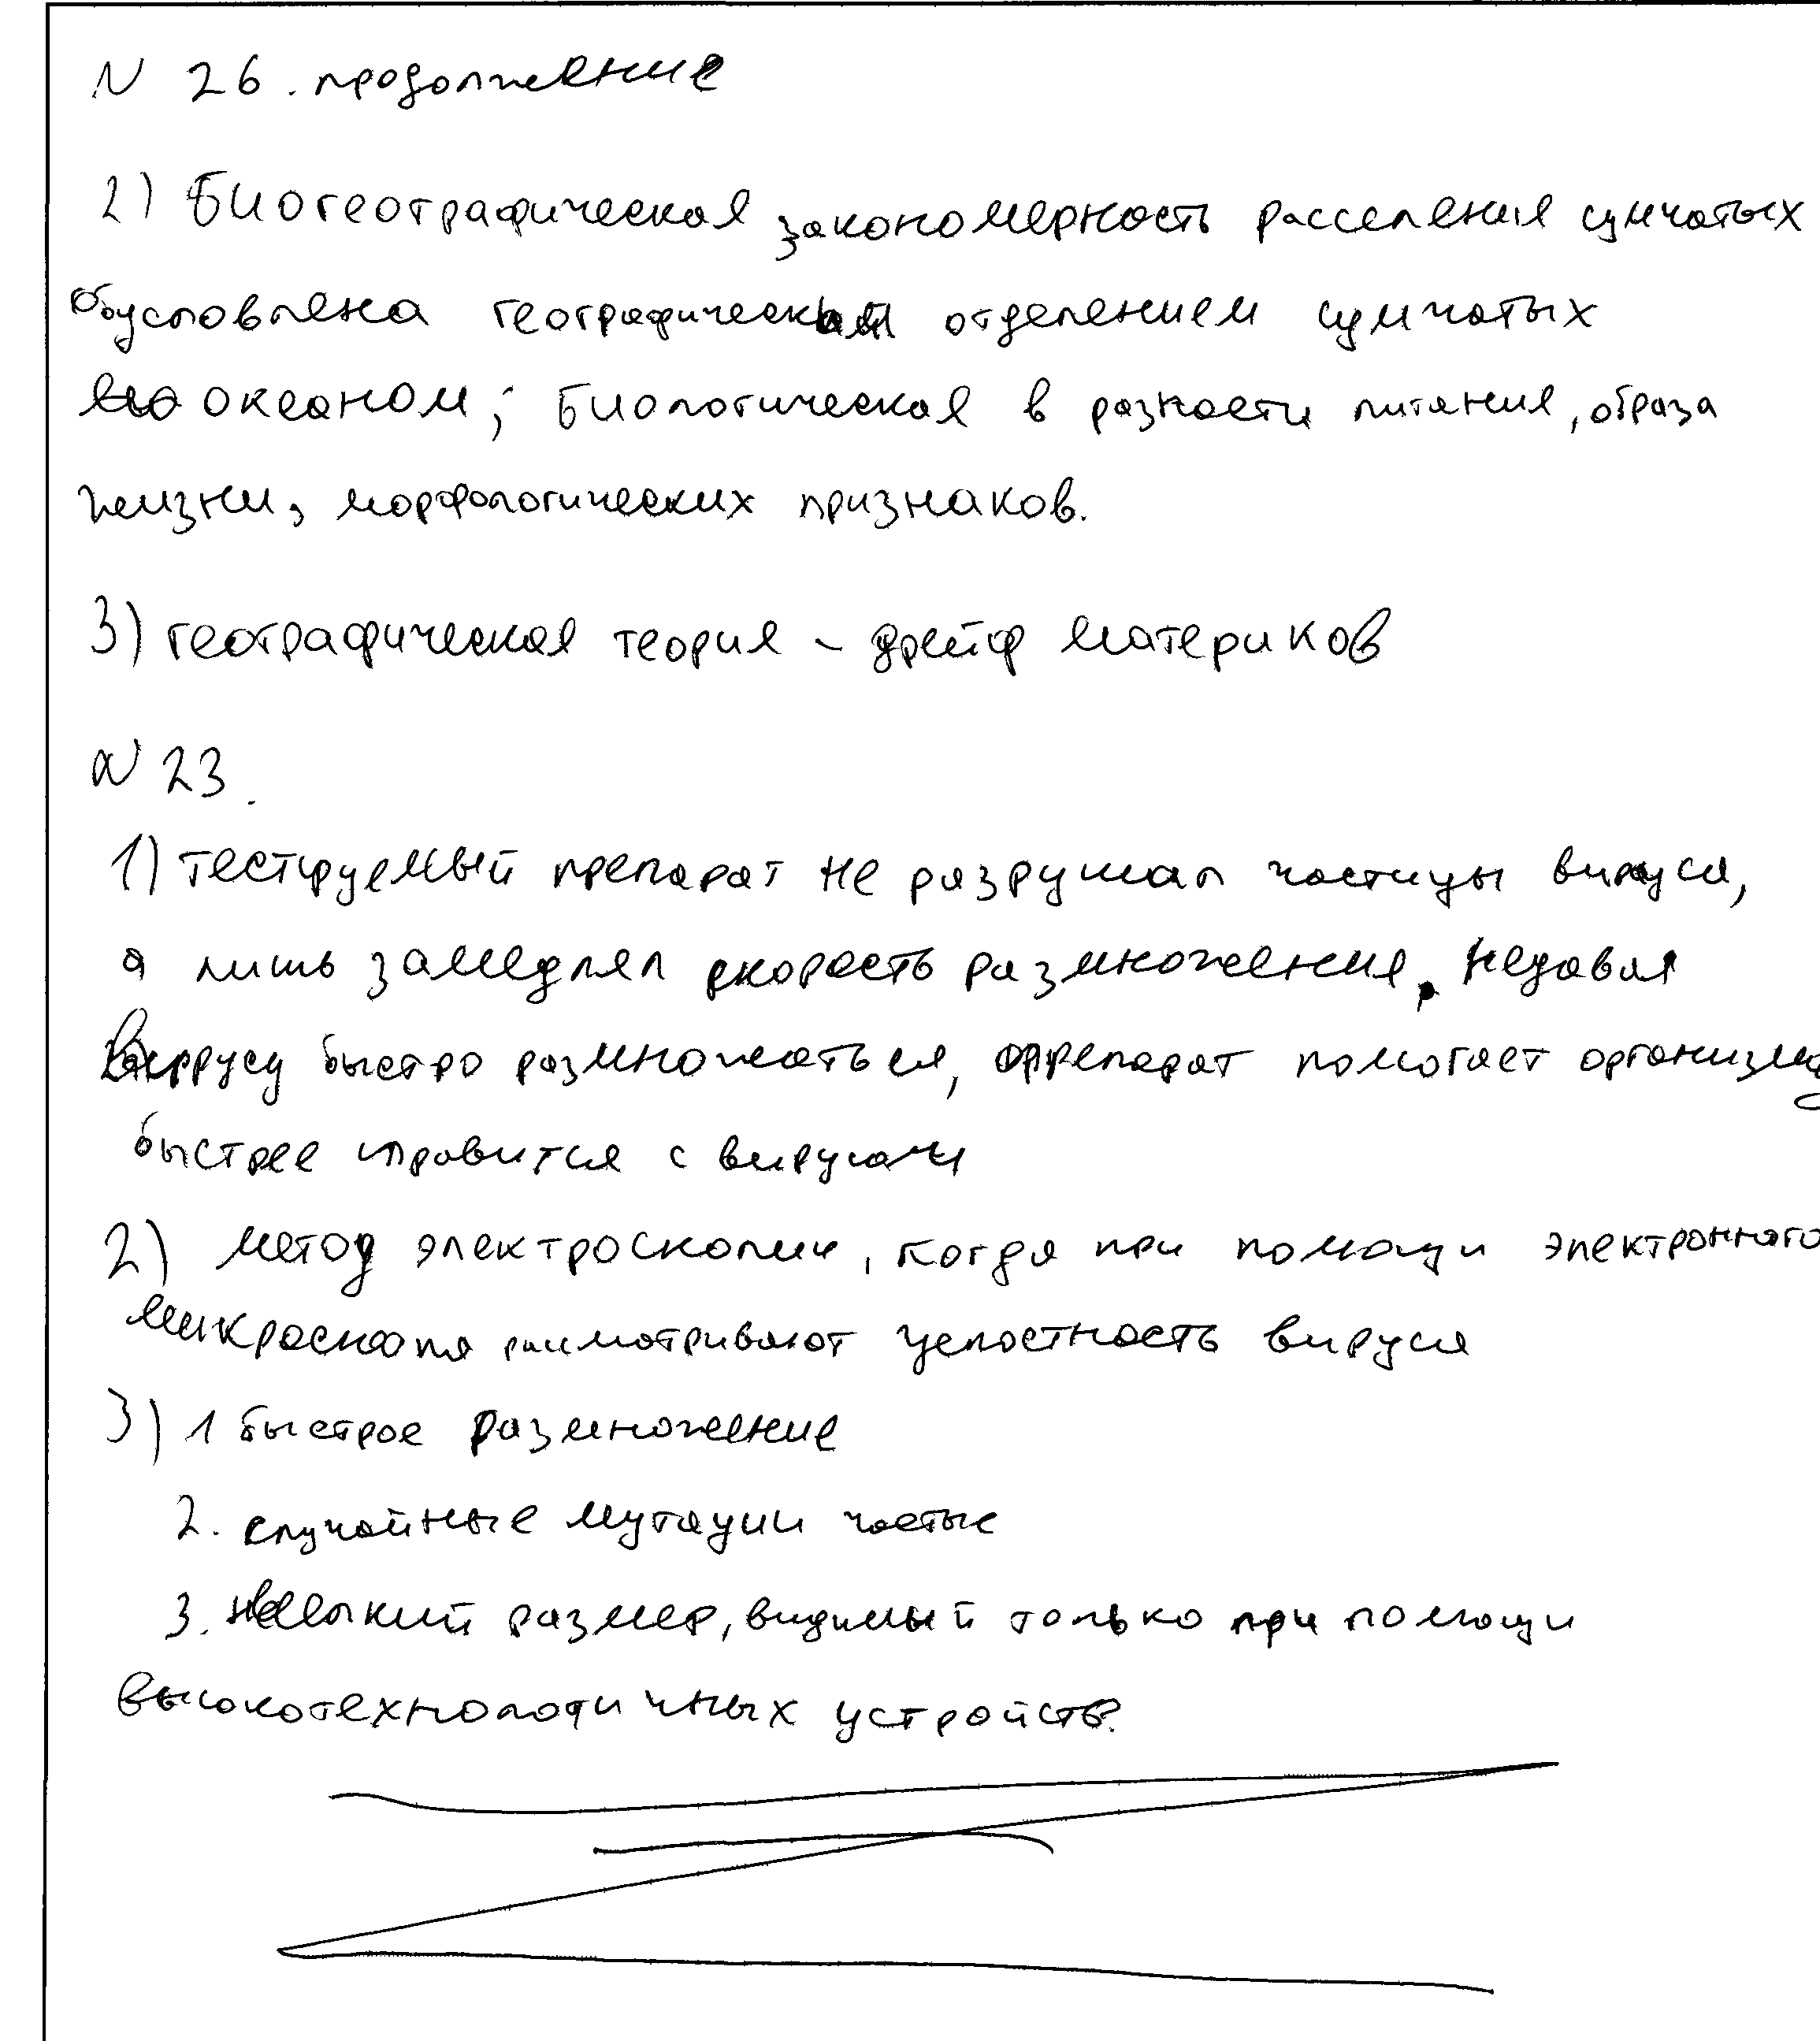 N 26. продолжение
2) Биогеографическая закономерность расселения сумчатых
обусловлена географическим отделением сумчатых
океаном; биологическая в разности питания, образа
жизни, морфологических признаков.
3) географическая теория - дрейф материков
N 23.
1) тестируемый препарат не разрушал частицы вируса,
а лишь замедлял скорость размножения. Недавая
вирусу быстро размножаться, препарат помогает организму
быстрее справится с вирусами
2) метод электроскопии, когда при помощи электронного
микроскопа рассматривают целостность вируса
3) 1 быстрое размножение
2. случайные мутации частые
3. мелкий размер, видимый только при помощи
высокотехнологичных устройств.